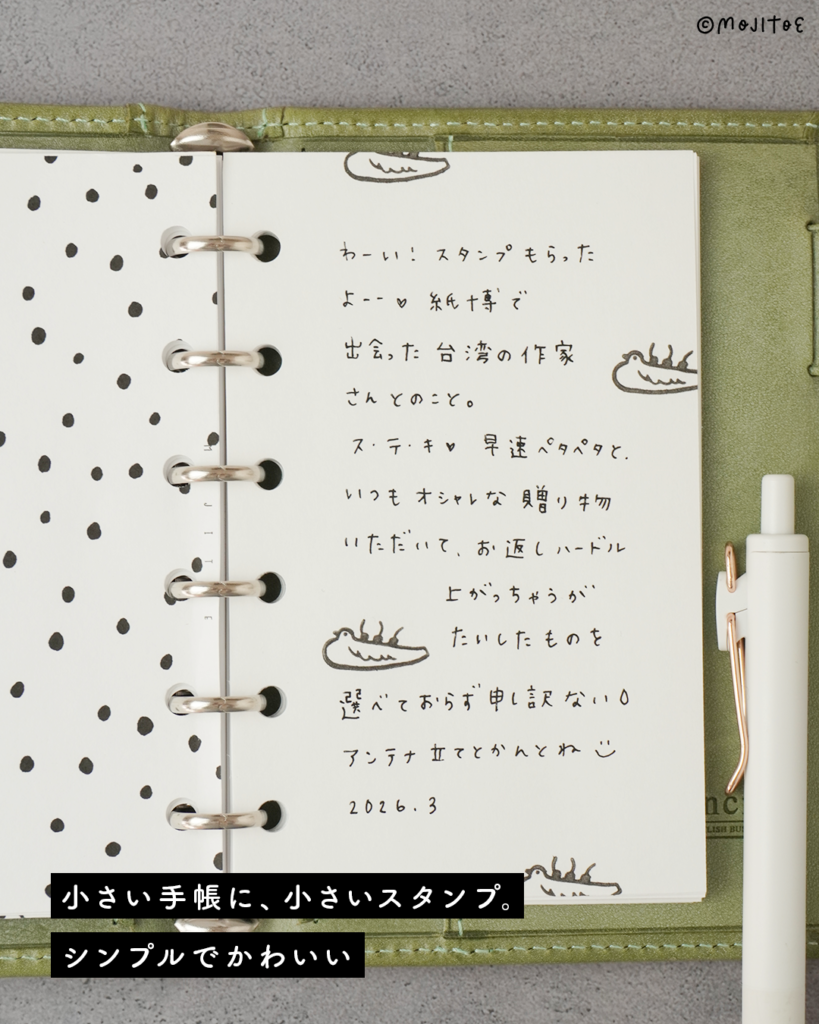 ©MOJITOE
わーい！スタンプもらった
よーー♥ 紙博で
出会った台湾の作家
さんとのこと。
ス・テ・キ♥ 早速ペタペタと.
いつもオシャレな贈り物
いただいて、お返しハードル
上がっちゃうが
たいしたものを
選べておらず申し訳ない
アンテナ立てとかんとね
2026.3
小さい手帳に、小さいスタンプ。
シンプルでかわいい